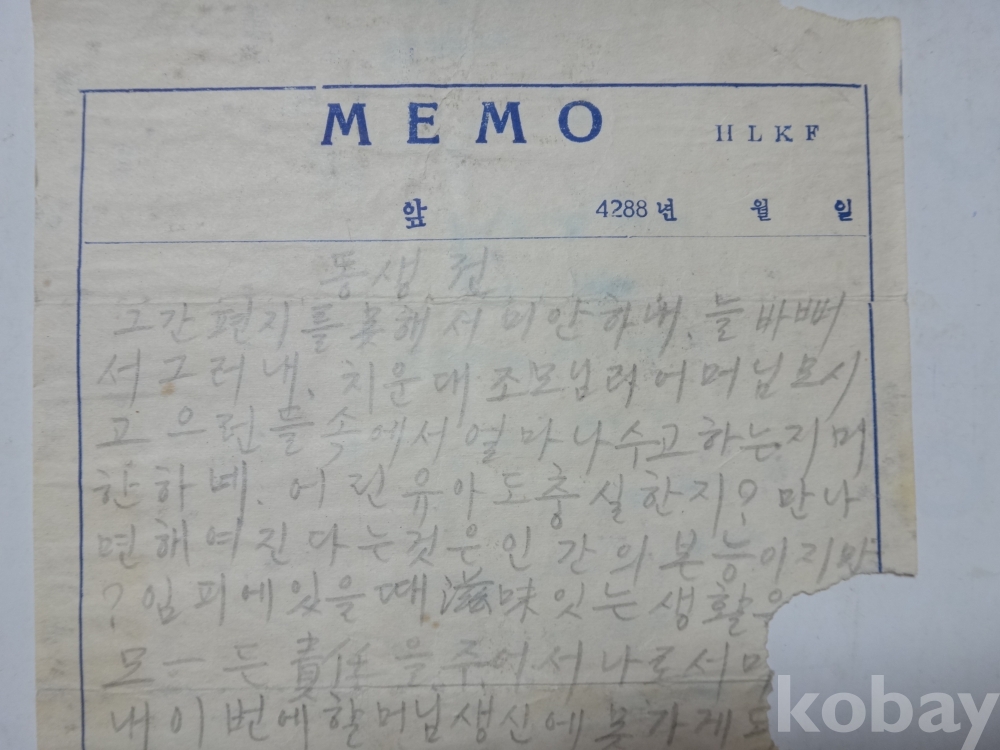 MEMO HLKF
앞 4288년 월 일
동생 전
그간 편지를 못해서 미안하네. 늘 바뻐
서 그러내. 치운대 조모님려 어머님 모시
고 으런들 속에서 얼마나 수고하는지 미
한하네. 어린 유아도 충실한지? 만나
면 해여진다는것은 인간의 본능이지만
? 임피에 있을 때 滋味 잇는 생활
모ー든 責任을 주어서 나로서
내 이번에 할머님 생신에 못가게
kobay